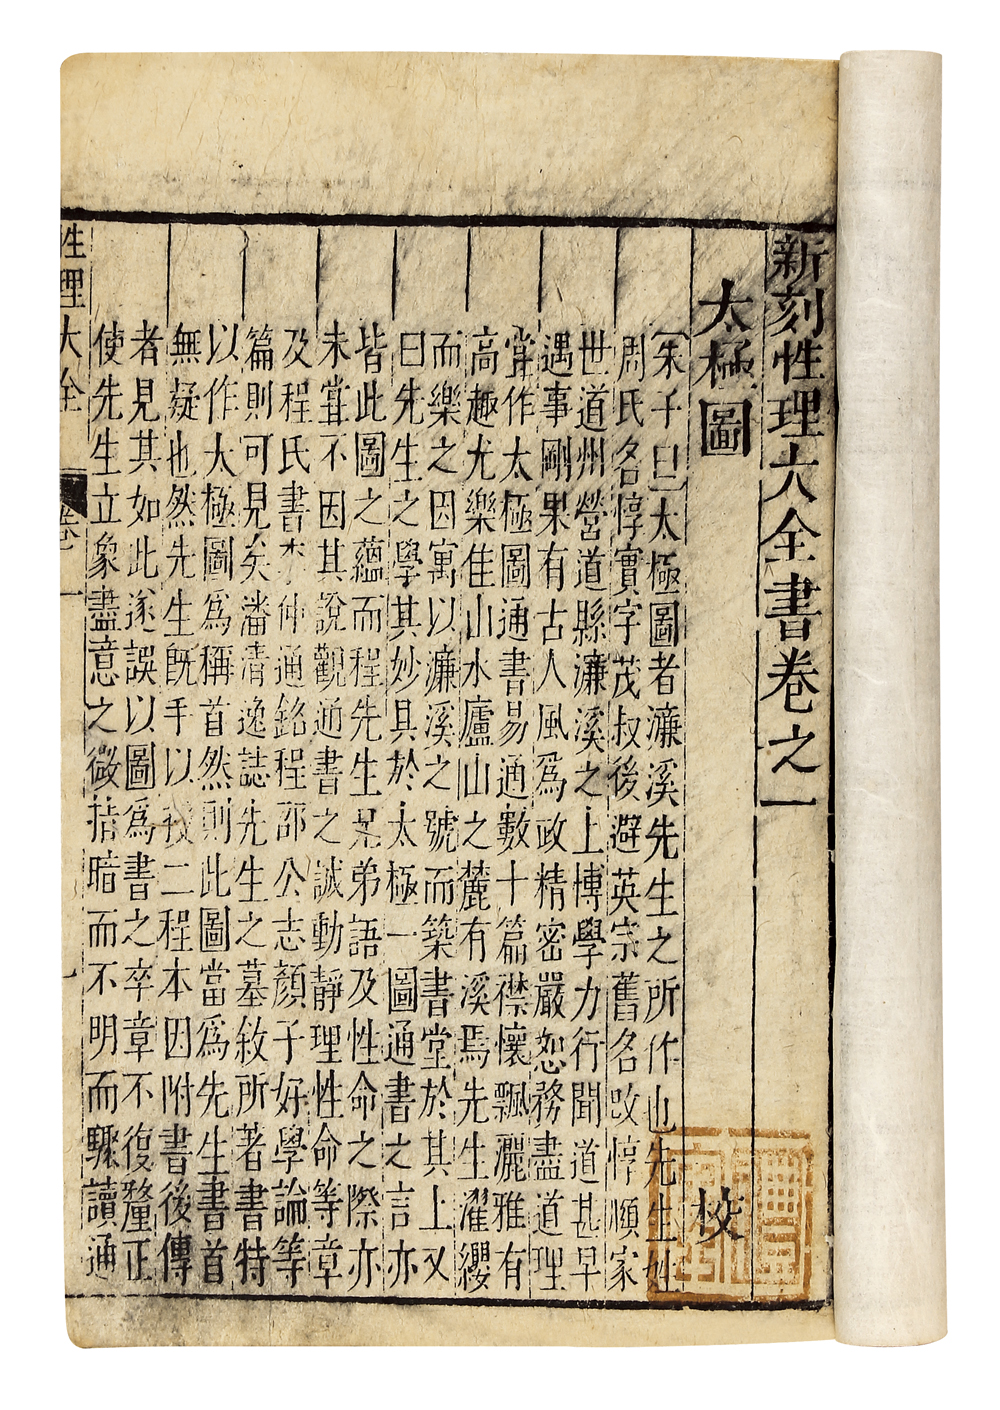 新刻性理大全書卷之一
太極圖　校
朱子曰太極圖者濂溪先生之所作也先生姓
周氏名惇實字茂叔後避英宗舊名改惇順家
世道州營道縣濂溪之上博學力行聞道甚早
遇事剛果有古人風爲政精密嚴恕務盡道理
嘗作太極圖通書易通數十篇襟懷飄灑雅有
高趣尤樂佳山水廬山之麓有溪焉先生濯纓
而樂之因寓以濂溪之號而築書堂於其上又
曰先生之學其妙具於太極一圖通書之言亦
皆此圖之蘊而程先生兄弟語及性命之際亦
未嘗不因其說觀通書之誠動靜理性命等章
及程氏書李仲通銘程邵公志顏子好學論等
篇則可見矣潘清逸誌先生之墓敘所著書特
以作大極圖爲稱首然則此圖當爲先生書首
無疑也然先生旣手以授二程本因附書後傳
者見其如此遂誤以圖爲書之卒章不復釐正
使先生立象盡意之微指暗而不明而驟讀通
性理大全　卷一